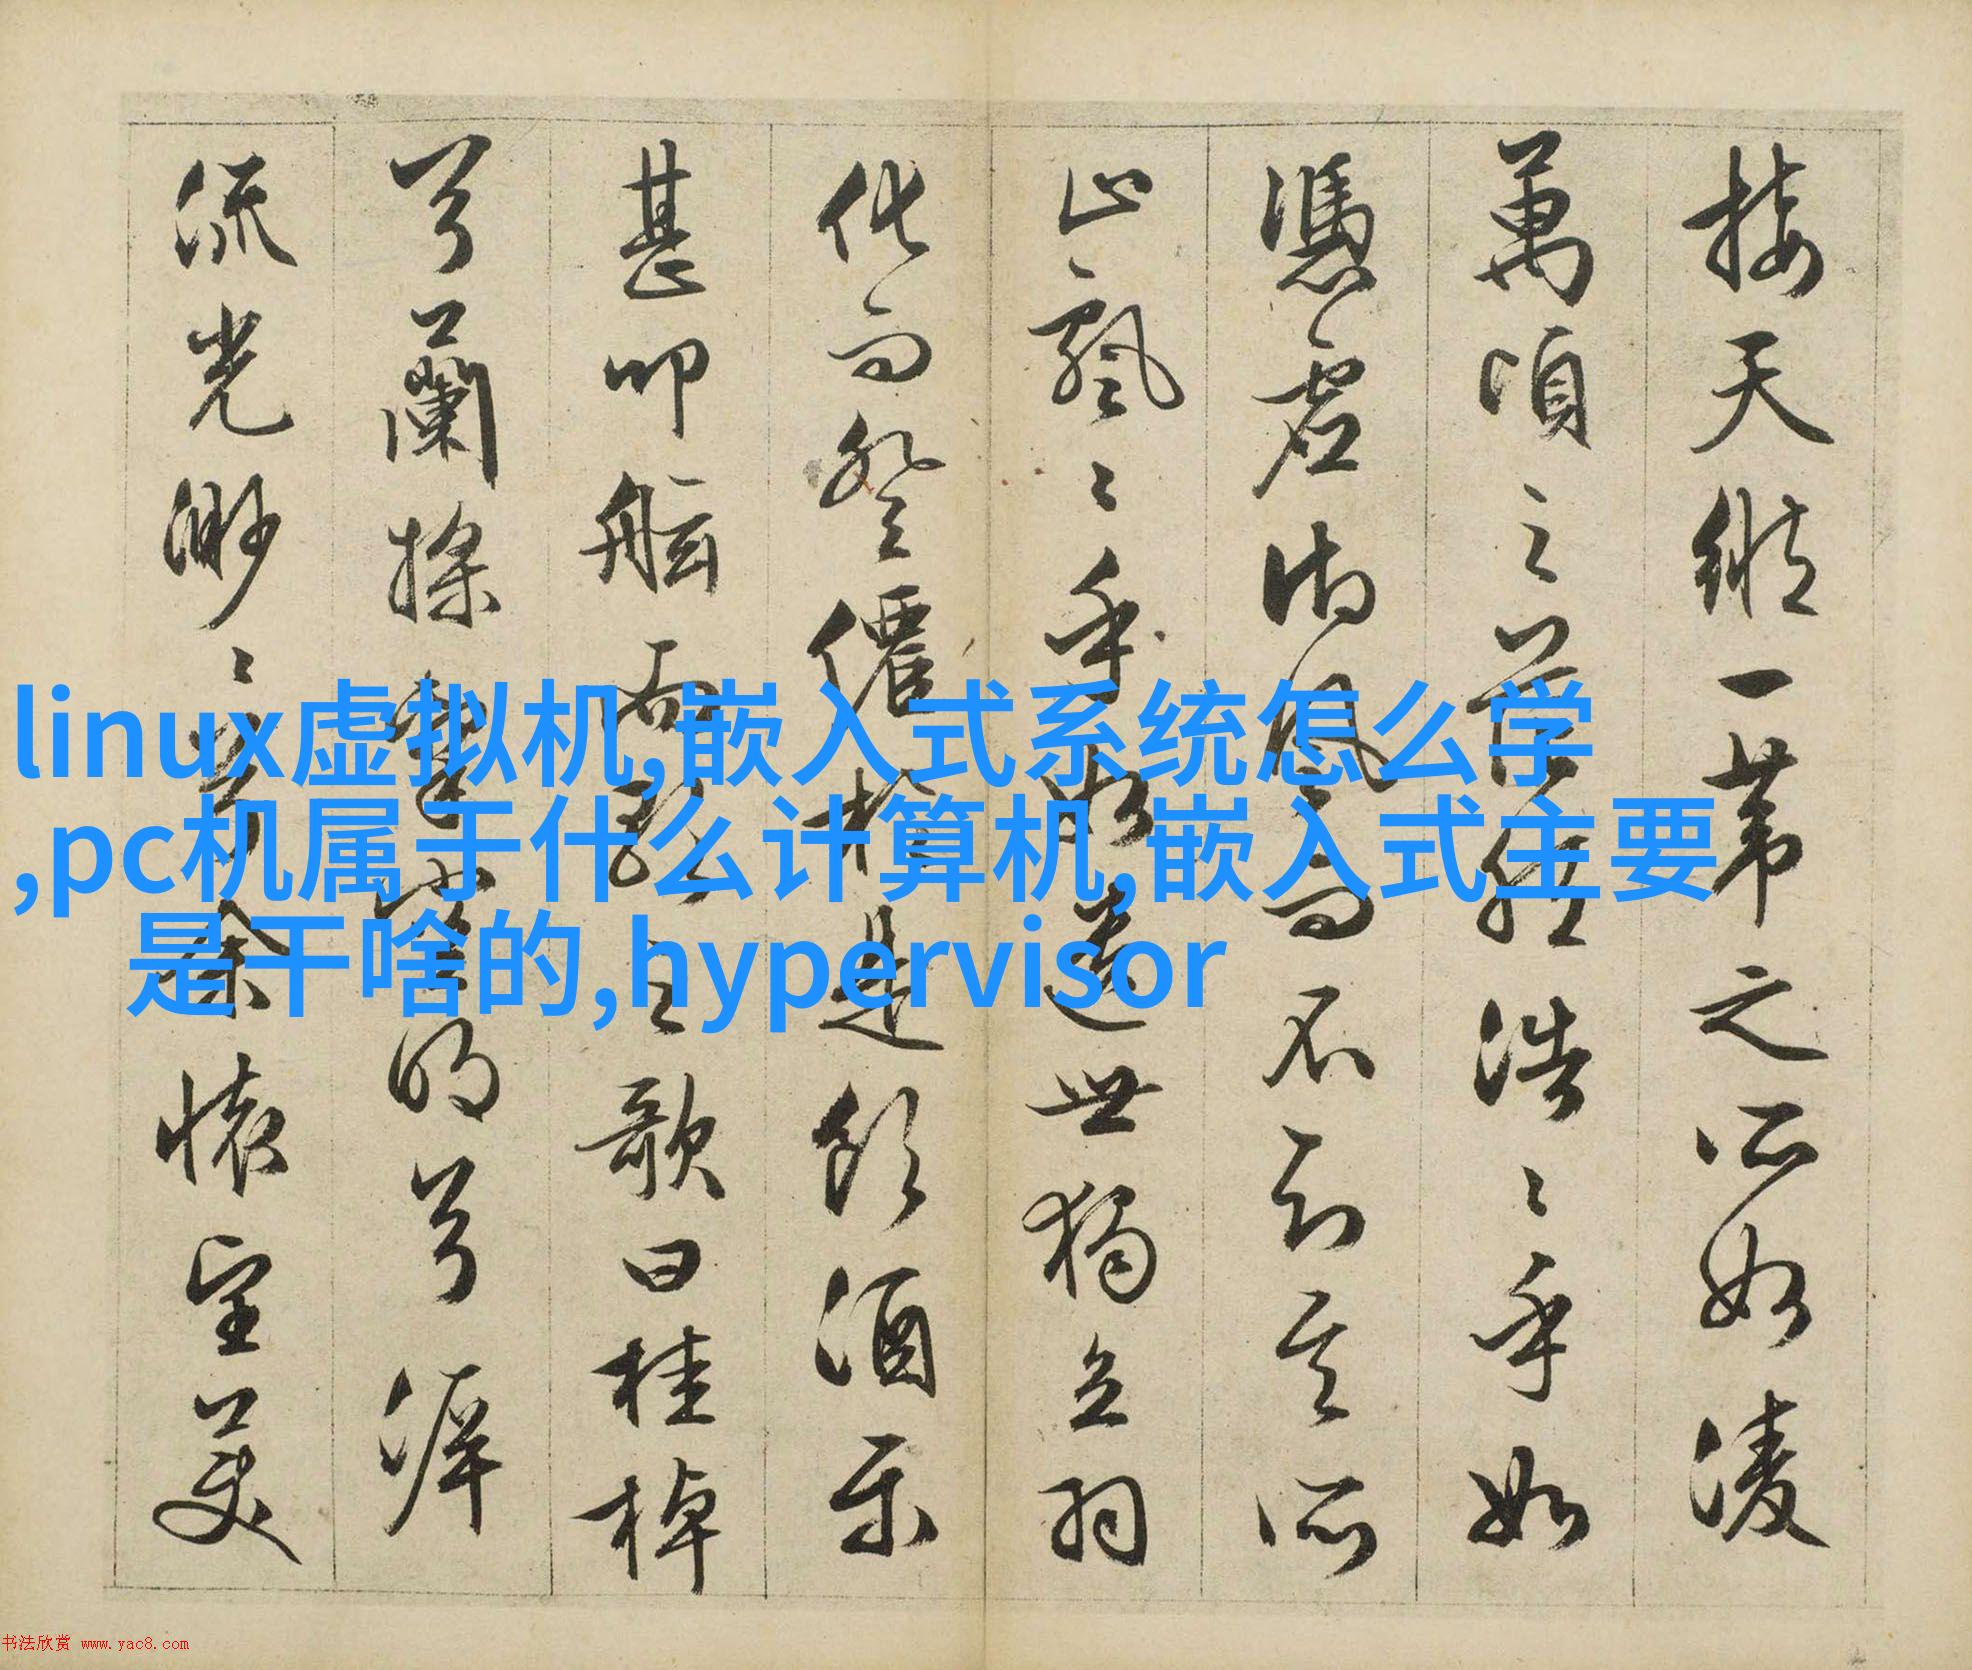 接天縱一葦之所如凌
萬頃之茫然浩〻乎如
憑虛御風而不知其所
止飄〻乎如遺世獨立羽
化而登僊於是飲酒樂
甚叩舷而歌之歌曰桂棹
兮蘭槳擊空明兮泝
流光渺〻兮余懷望美
linux虚拟机,嵌入式系统怎么学
,pc机属于什么计算机,嵌入式主要
是干啥的,hypervisor
书法欣赏 www.yac8.com